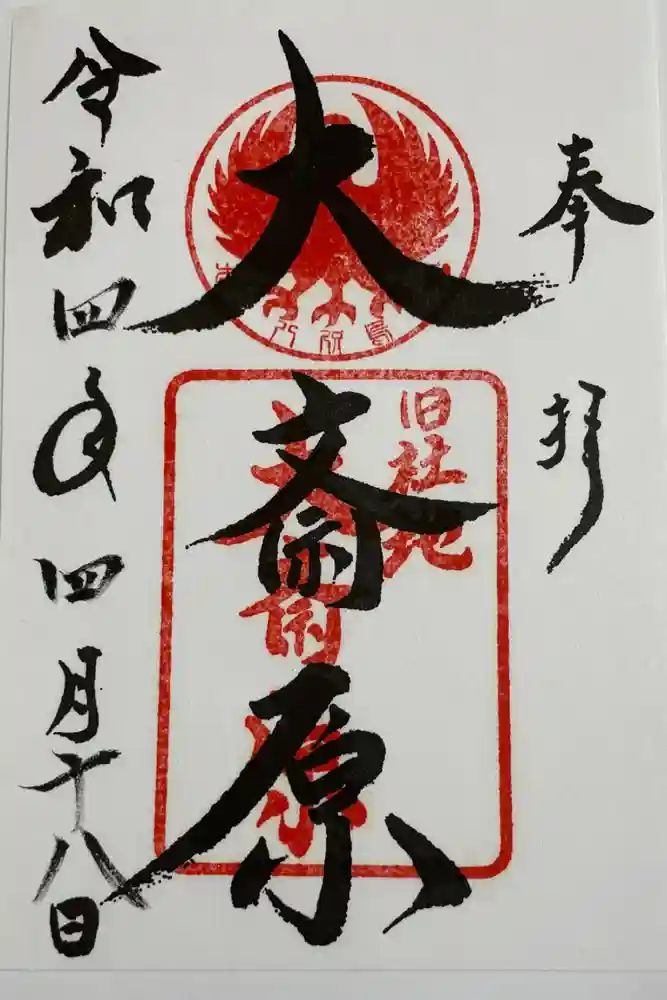 奉拝
大斎原
旧社地
大斎原
令和四年四月十八日